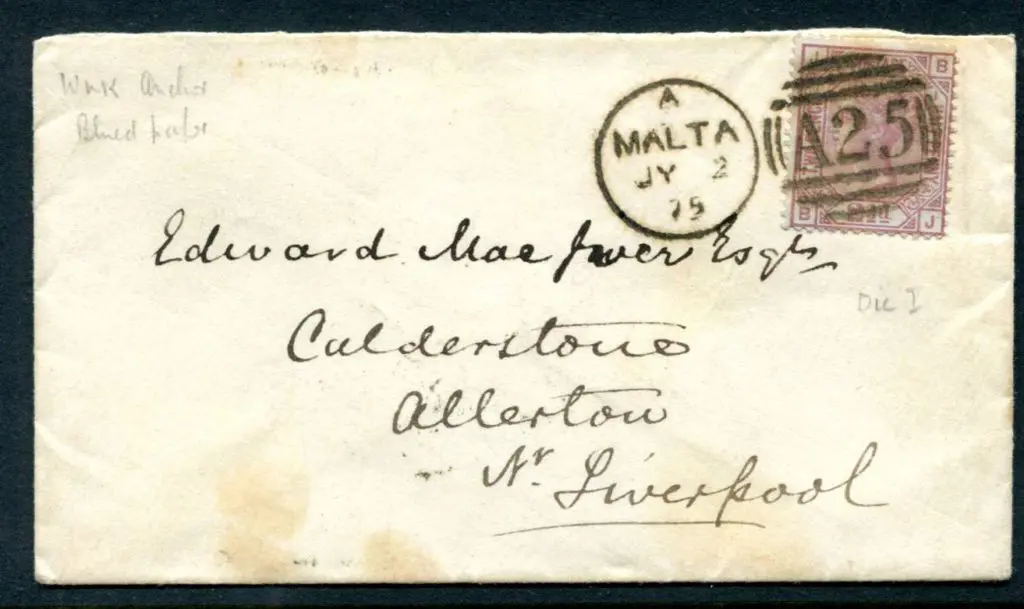 Wmk Anchor
Blued paper
A
MALTA
JY 2
75
A25
J B
B J
Edward Mac Iver Esqre
Calderstone
Allerton
Nr. Liverpool
Die I